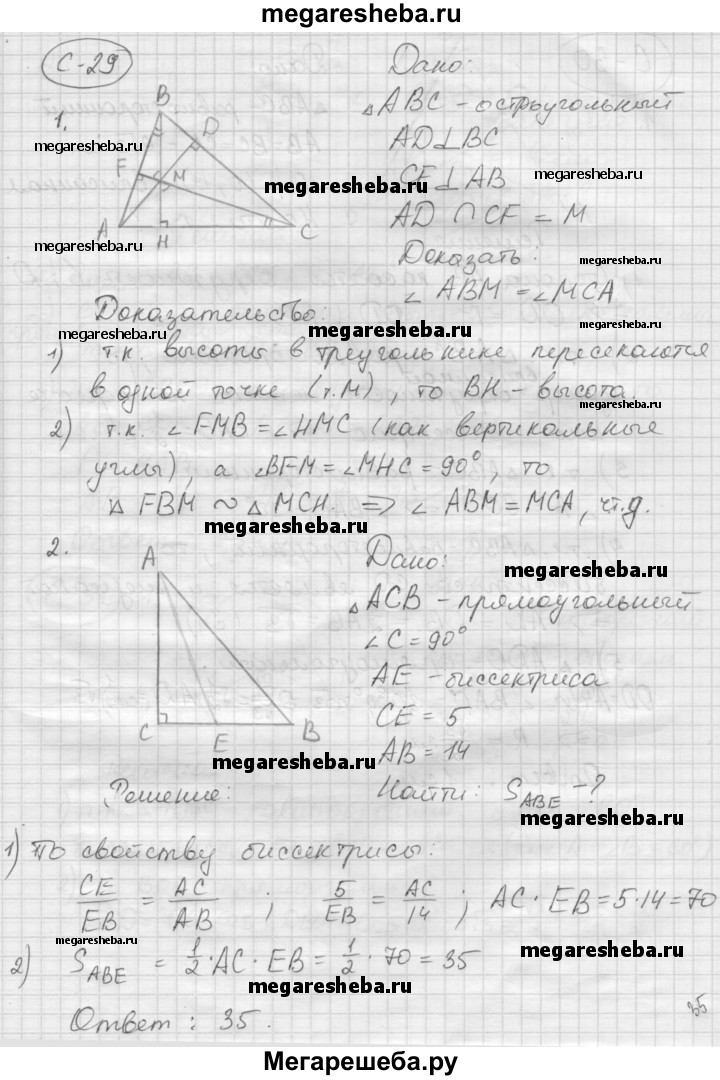 megaresheba.ru
С-29
Дано:
1.
B
D
F
M
A
H
C
△ABC - остроугольный
AD⊥BC
CF⊥AB
AD ∩ CF = M
Доказать:
∠ABM = ∠MCA
megaresheba.ru
megaresheba.ru
megaresheba.ru
megaresheba.ru
Доказательство:
megaresheba.ru
megaresheba.ru
megaresheba.ru
1) т.к. высоты в треугольнике пересекаются
в одной точке (т.М), то BH - высота.
megaresheba.ru
2) т.к. ∠FMB = ∠HMC (как вертикальные
углы), а ∠BFM = ∠MHC = 90°, то
△FBM ~ △MCH. => ∠ABM = MCA, чт.д.
megaresheba.ru
2.
A
C
E
B
Дано:
megaresheba.ru
△ACB - прямоугольный
∠C = 90°
AE - биссектриса
CE = 5
AB = 14
megaresheba.ru
Найти: S ABE - ?
megaresheba.ru
Решение:
1) По свойству биссектрисы:
CE/EB = AC/AB ; 5/EB = AC/14 ; AC · EB = 5·14 = 70
megaresheba.ru
megaresheba.ru
2) S ABE = 1/2 · AC · EB = 1/2 · 70 = 35
megaresheba.ru
Ответ: 35.
35
Мегарешеба.ру